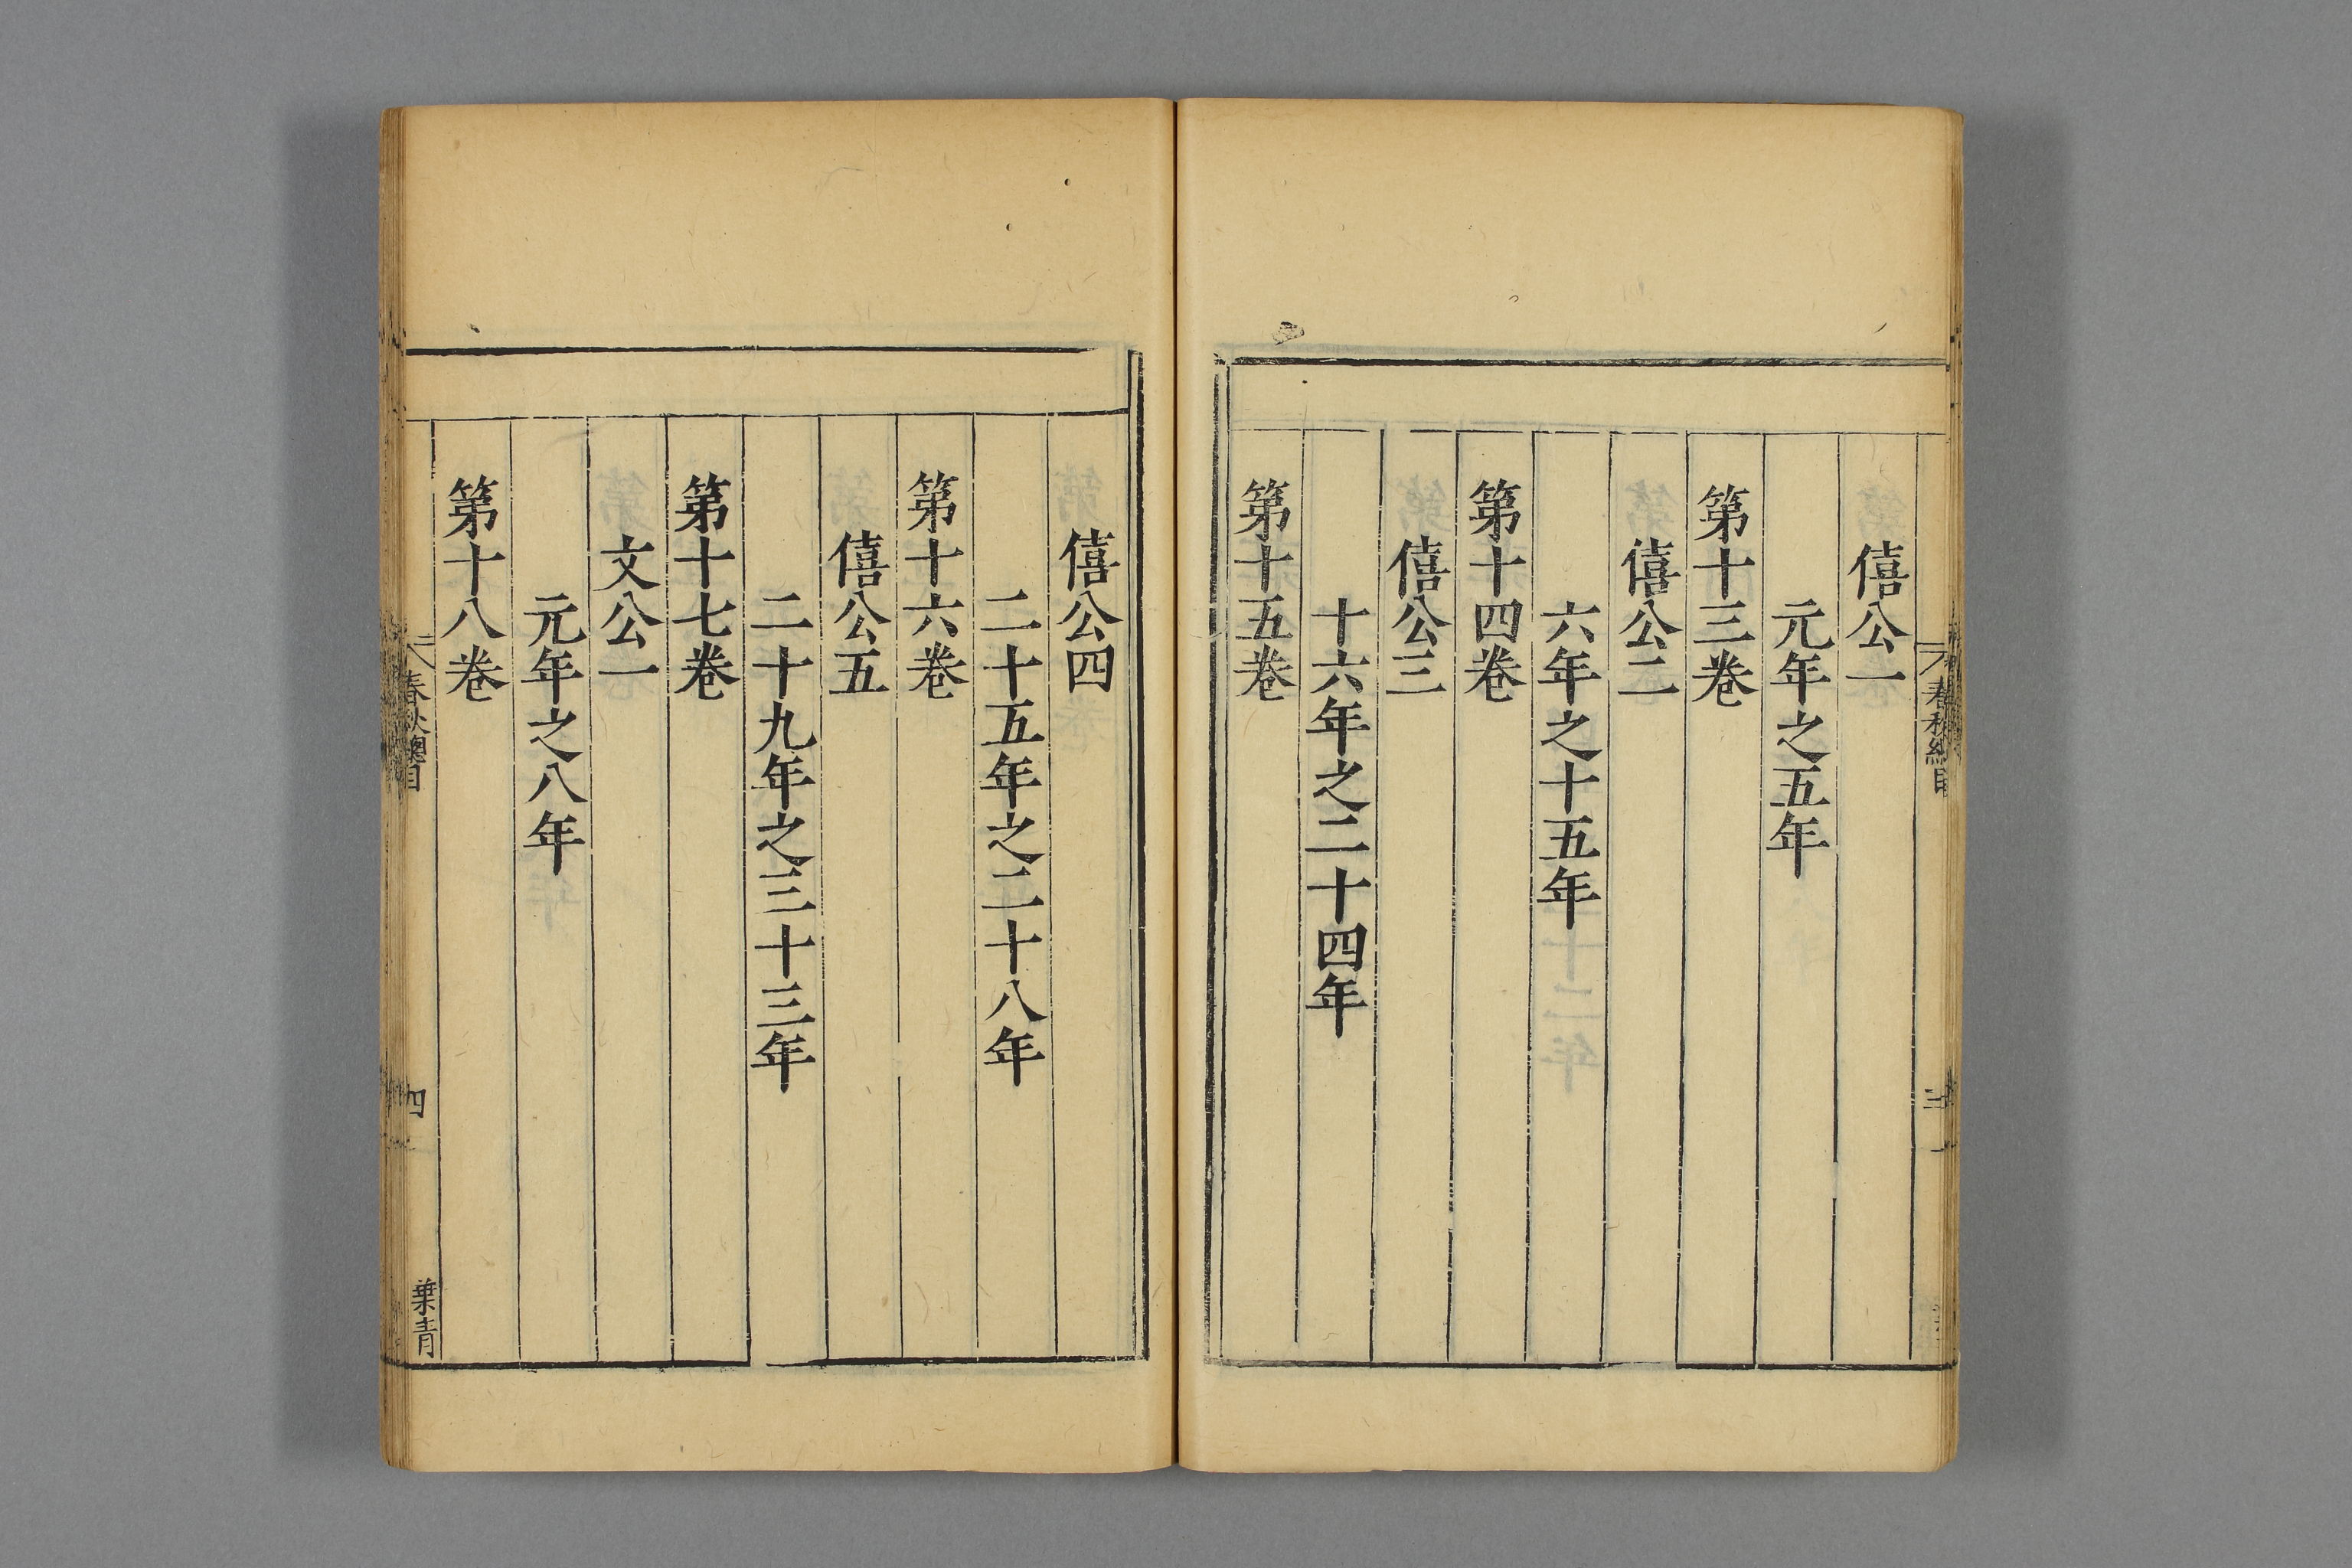 僖公一
元年之五年
第十三卷
僖公二
六年之十五年
第十四卷
僖公三
十六年之二十四年
第十五卷
僖公四
二十五年之二十八年
第十六卷
僖公五
二十九年之三十三年
第十七卷
文公一
元年之八年
第十八卷
春秋總目
四
葉青